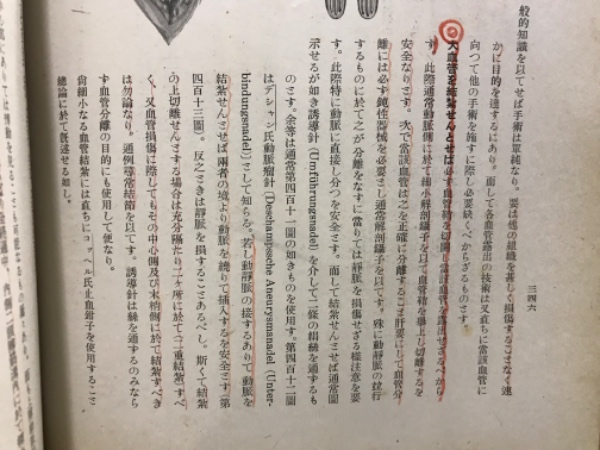 三四六
般的知識を以てせば手術は單純なり。要は他の組織を甚しく損傷することなく速
かに目的を達するにあり。而して各血管露出の技術は又直ちに當該血管に
向つて他の手術を施すに際し必要缺くべからざるものとす。
大血管を結紮せんとせば必ず血管鞘を切開し當該血管を露出せざるべから
ず。此際通常動脈側に於て細小解剖鑷子を以て血管鞘を擧上し切離するを
安全なりとす。次で當該血管は之を正確に分離すること肝要にして血管分
離には必ず鈍性器械を必要とし通常解剖鑷子を以てす。殊に動靜脈の竝行
するものに於て之が分離をなすに當りては靜脈を損傷せざる樣注意を要
す。此際特に動脈に直接し分つを安全とす。而して結紮せんとせば通常圖
示せるが如き誘導針 (Umführungsnadel) を介して二條の絹絲を通ずるも
のとす。余等は通常第四百十一圖の如きものを使用す。第四百十二圖
はデシャン氏動脈瘤針 (Deschampssche Aneurysmanadel (Unter-
bindungsnadel)) として知らる。若し動靜脈の接するありて動脈を
結紮せんとせば兩者の境より動脈を繞りて插入するを安全とす(第
四百十三圖)。反之ときは靜脈を損することあるべし。斯くて結紮
の上切離せんとする場合は充分隔たり二ヶ所に於て(二重結紮)すべ
く、又血管損傷に際してもその中心側及び末梢側に於て結紮すべき
は勿論なり。通例尋常結節を以てす。誘導針は絲を通ずるのみなら
ず血管分離の目的にも使用して便なり。
尙細小なる血管結紮には直ちにコッヘル氏止血鉗子を使用すること
總論に於て旣述せる如し。